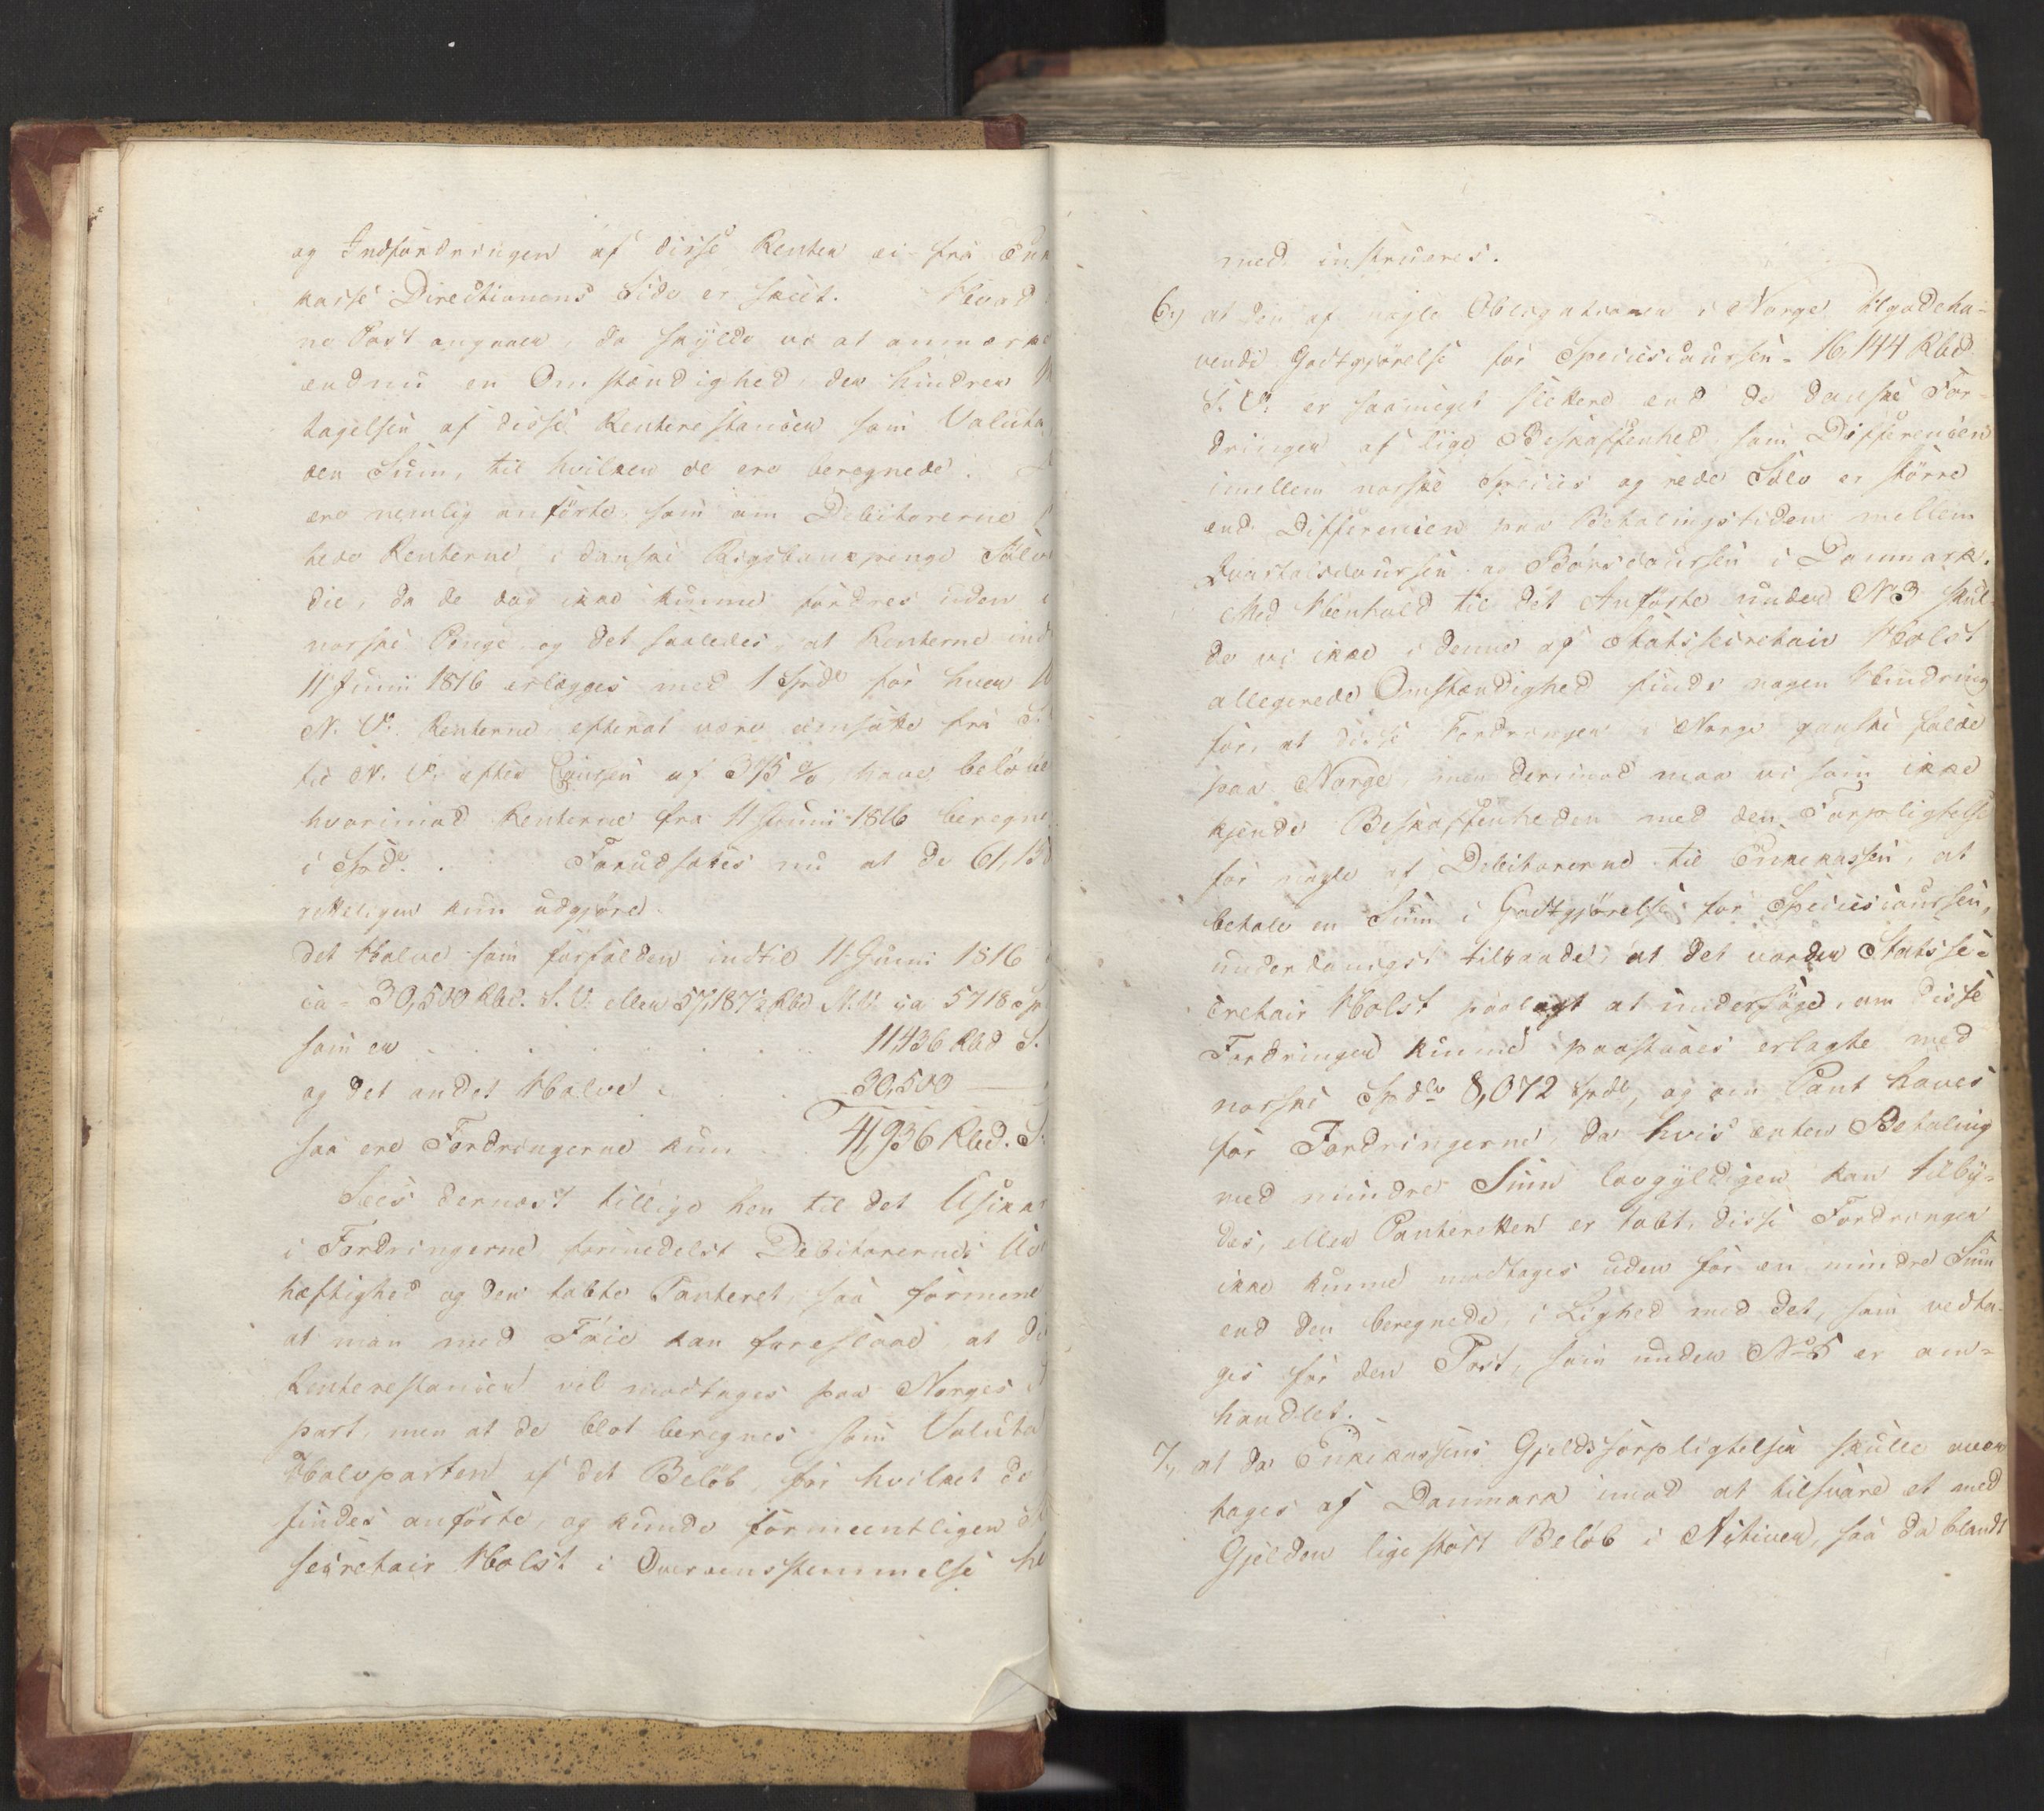 og Indfordringen af disse Renter ei fra Enk
kasse Directionens Side er skeet. Hvad
ne Post angaaer, da skylde vi at anmærke
endnu en Omstændighed, der hindrer
tagelsen af disse Renterestancer som Valuta
den Sum, til hvilken de ere beregnede.
ere nemlig anførte, som om Debitorerne
hede Renterne i danske Rigsbankpenge Sølv
die, da de dog ikke kunne fordres uden i
norske Penge og det saaledes, at Renterne ind
11 Junii 1816 erlægges med 1 Spd for hver
N. V. Renterne efterat være omsatte fra S.
til N. V. efter Coursen af 375 %, have beløbe
hvorimod Renterne fra 11 Junii 1816 beregne
i Spd. Forudsættes nu at de 61,13
retteligen kun udgjøre
det Halve som forfalden indtil 11 Junii 1816
ca 30,500 Rbd. S. V. eller 57,187½ Rbd N. V. ca 5718 Sp
som er . . . 11,436 Rbd S.
og det andet Halve . . . 30,500
saa ere Fordringerne kun . . 41,936 Rbd. S.
Sees dernæst tillige hen til det Usikk
i Fordringerne formedelst Debitorernes
hæftighed og den tabte Panteret, saa formene
at man med Føie kan foreslaae, at di
Renterestancer vel modtages paa Norges
part, men at de blot beregnes som Valuta
Halvparten af det Beløb, for hvilket de
findes anførte, og kunde formeentligen
secretair Holst i Overeensstemmelse he
med instrueres.
6,) at den af nogle Obligationer i Norge tilgodeha-
vende Godtgjørelse for Speciescoursen - 16,144 Rbd
S. V. er saameget sikkere end de danske For-
dringer af lige Beskaffenhed som Differencen
imellem norske Species og rede Sølv er større
end Differencen paa Betalingstiden mellem
Qvartalscoursen og Børscoursen i Danmark.
Med Henhold til det Anførte under No 3 skul-
de vi ikke i denne af Statssecretair Holst
allegerede Omstændighed finde nogen Hindring
for, at disse Fordringer i Norge ganske falde
paa Norge, men derimod maa vi som ikke
kjende Beskaffenheden med den Forpligtelse
for nogle af Debitorerne til Enkekassen, at
betale en Sum i Godtgjørelse for Speciescoursen,
underdanigst tilraade, at det vorder Statsse-
cretair Holst paalagt at undersøge, om disse
Fordringer kunne paastaaes erlagte med
norske Spdlr 8,072 Spdl, og om Pant haves
for Fordringerne, da hvis enten Betaling
med mindre Sum lovgyldigen kan tilby-
des, eller Panteretten er tabt, disse Fordringer
ikke kunne modtages uden for en mindre Sum
end den beregnede, i Lighed med det, som vedta-
ges for den Post, som under No 5 er om-
handlet.
7,) at da Enkekassens Gjeldsforpligtelser skulle over
tages af Danmark imod at tilsvare et med
Gjelden lige stort Beløb i Activer, saa da blandt